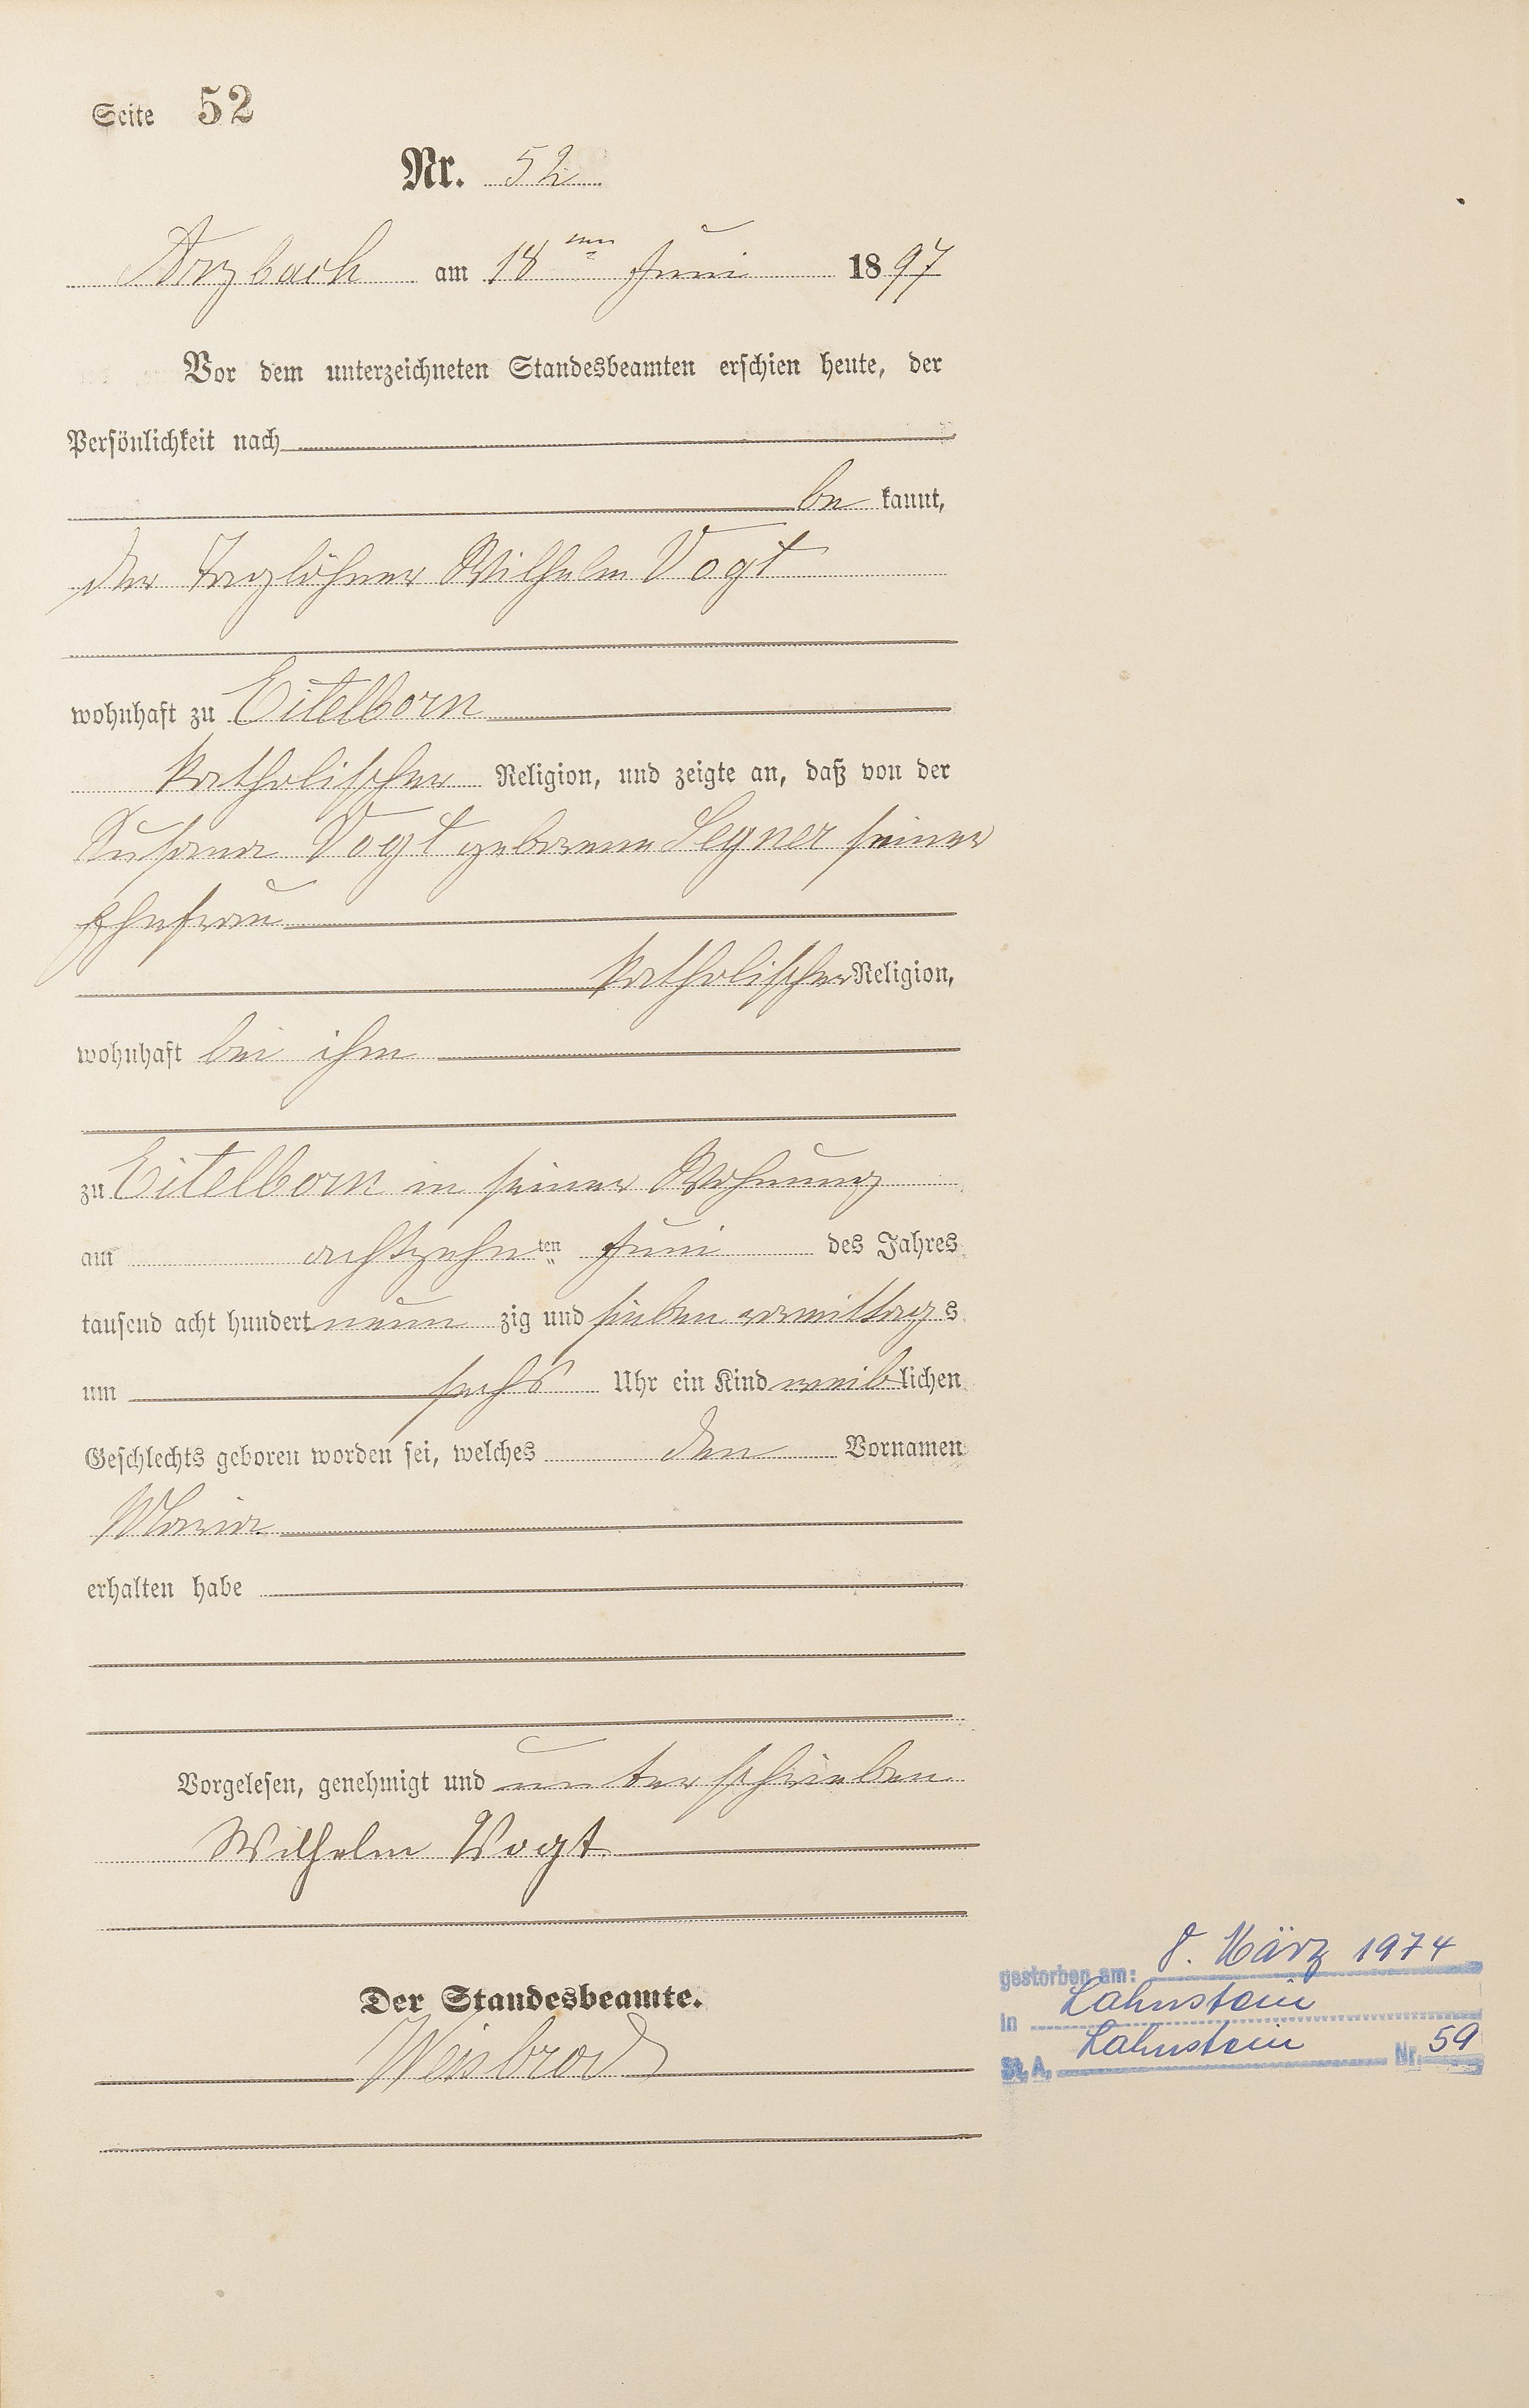 Seite 52
Nr. 52
Arzbach am 18ten Juni 1897
Vor dem unterzeichneten Standesbeamten erschien heute, der
Persönlichkeit nach
bekannt,
der Taglöhner Wilhelm Vogt
wohnhaft zu Eitelborn
katholischer Religion, und zeigte an, daß von der
Susana Vogt geborene Legner seiner
Ehefrau
katholischer Religion,
wohnhaft bei ihm
zu Eitelborn in seiner Wohnung
am achtzehnten Juni des Jahres
tausend acht hundert neunzig und sieben vormittags
um sechs Uhr ein Kind weiblichen
Geschlechts geboren worden sei, welches den Vornamen
Maria
erhalten habe
Vorgelesen, genehmigt und unterschrieben
Wilhelm Vogt
Der Standesbeamte.
Weisbrod
gestorben am: 8. März 1974
in Lahnstein
St. A. Lahnstein Nr. 59